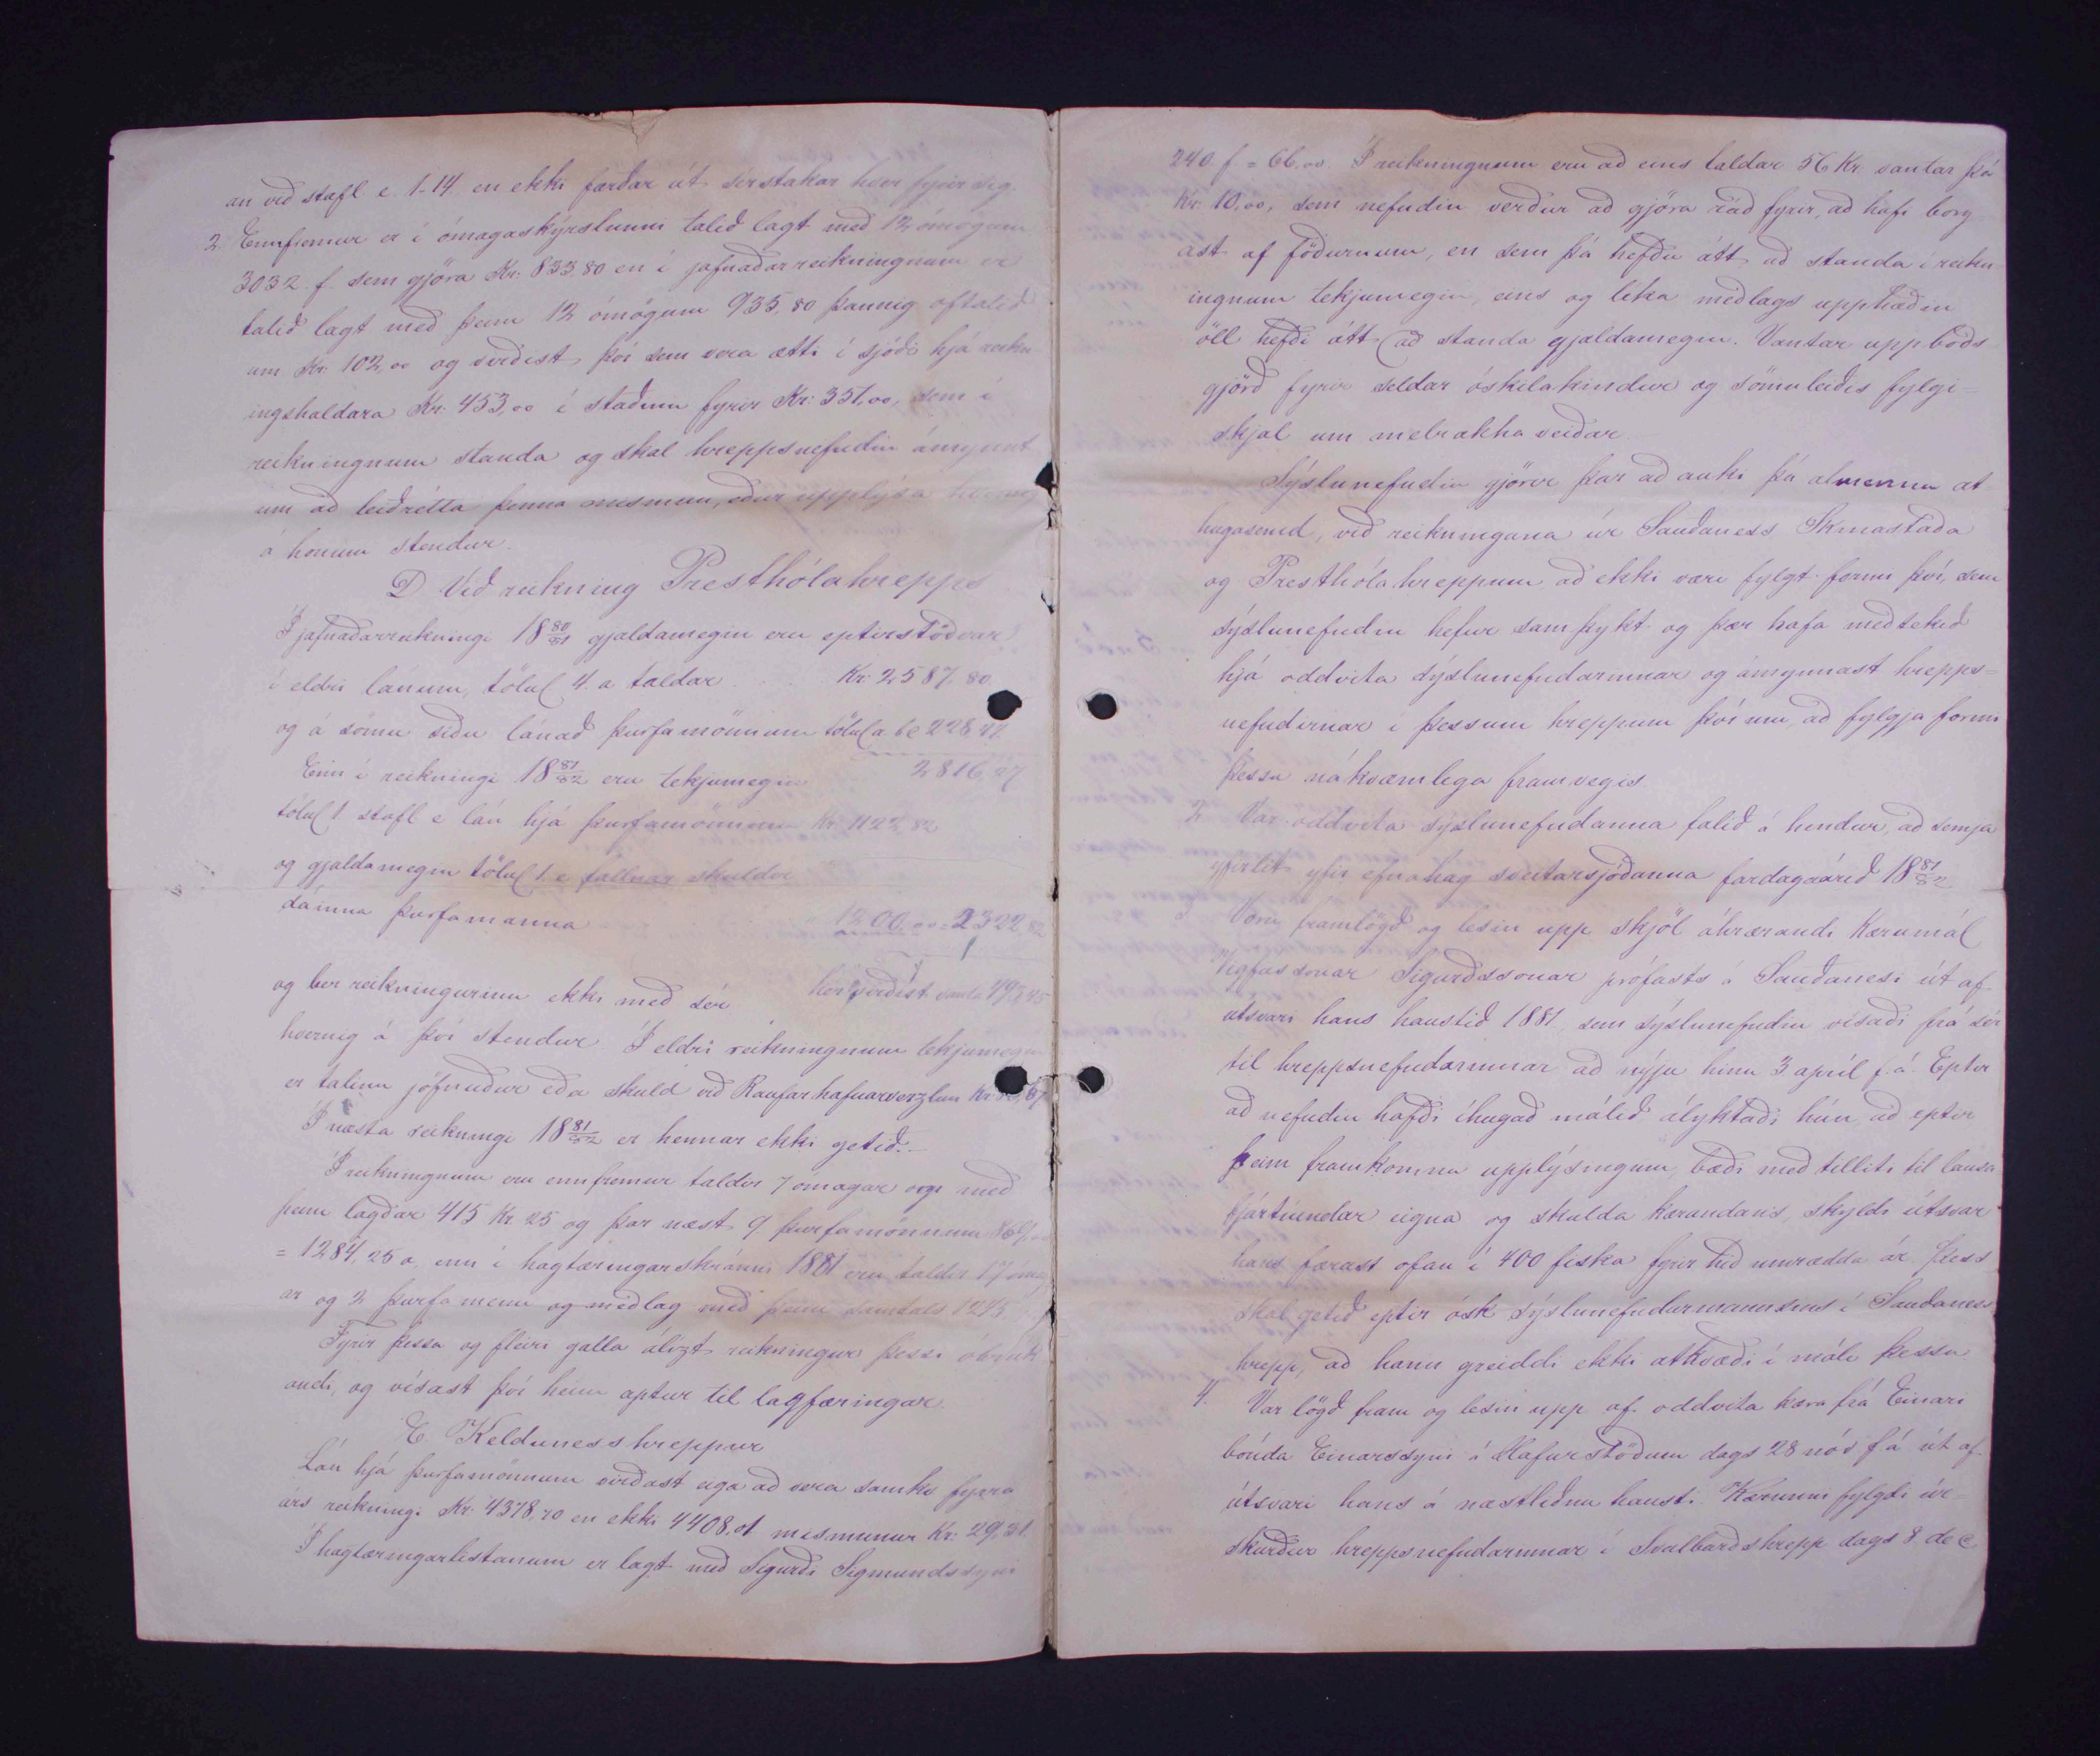 an við stafl e. 1-14 en ekki færðar út sérstakar hver fyrir sig.
2. Ennfremur er í ómagaskýrslunni talið lagt með 12 ómögum
3032 f. sem gjöra Kr: 833 80 en í jafnaðarreikningnum er
talið lagt með þeim 12 ómögum 935,80 þannig oftalið
um Kr. 102,00 og virðist því sem vera ætti í sjóði hjá reikn
ingshaldara Kr: 453,00 í staðinn fyrir Kr: 351,00, sem í
reikningnum standa og skal hreppsnefndin ámynnt
um að leiðrétta þenna mismun, eður upplýsa hvernig
á honum stendur.
D Við reikning Presthólahrepps
Í jafnaðarreikningi 18 80/81 gjaldamegin eru eptirstöðvar
í eldri lánum, tölul 4. a taldar . . . Kr: 2587,80
og á sömu síðu lánað þurfamönnum tölul a 6e 228,47
Enn í reikningi 18 81/82 eru tekjumegin 2816,27
tölul 1 stafl e lán hjá þurfamönnum Kr 1122 82
og gjaldamegin tölul 1. e fallnar skuldir
dáinna þurfamanna 1200,00 = 2322 82
og ber reikningurinn ekki með sér hér virðist vanta 493 45
hvernig á því stendur. Í eldri reikningnum tekjumegin
er talinn jöfnuður eða skuld við Raufarhafnarverzlun Kr. 67
Í næsta reikningi 18 81/82 er hennar ekki getið.-
Í reikningnum eru ennfremur taldir 7 omagar og með
þeim lagðar 415 Kr. 25 og þar næst 9 þurfamönnum 869,00
= 1284,25 a, enn í hagtæringarskránni 1881 eru taldir 17 ómag
ar og 2 þurfamenn og meðlag með þeim samtals 1275
Fyrir þessa og fleiri galla álízt reikningur þessi óbrúk
andi, og vísast því hinn aptur til lagfæringar.
E. Kelduness hreppur
Lán hjá þurfamönnum virðast eiga að vera samkv fyrra
árs reikningi Kr: 4378,70 en ekki 4408,01 mismunur Kr: 29,31.
Í hagtæringarlistanum er lagt með Sigurði Sigmundssyni
240 f = 66,00. Í reikningnum eru að eins taldar 56 Kr. vantar þá
Kr: 10,00, sem nefndin verður að gjöra ráð fyrir, að hafi borg
ast af föðurnum, en sem þá hefðu átt að standa í reikn
ingnum tekjumegin, eins og líka meðlags upphæðin
öll hefði átt að standa gjaldamegin. Vantar uppboðs
gjörð fyrir seldar óskilakindur og sömuleiðis fylgi=
skjal um melrakka veiðar.
Sýslunefndin gjörir þar að auki þá almennu at
hugasemd, við reikningana úr Sauðaness Skinnastaða
og Presthóla hreppum að ekki væri fylgt formi því, sem
sýslunefndin hefur samþykt og þær hafa meðtekið
hjá oddvita sýslunefndarinnar og ámynnast hrepps=
nefndirnar í þessum hreppum því um, að fylgja formi
þessu nákvæmlega framvegis
2 Var oddvita sýslunefndanna falið á hendur, að semja
yfirlit yfir efnahag sveitarsjóðanna fardagaárið 18 81/82
Voru framlögð og lesin upp skjöl áhrærandi kærumál
Vigfússonar Sigurðssonar prófasts á Sauðanesi út af
útsvari hans haustið 1881, sem sýslunefndin vísaði frá sér
til hreppsnefndarinnar að nýju hinn 3 apríl f. á. Eptir
að nefndin hafði íhugað málið, ályktaði hún, að eptir
þeim framkomnu upplýsingum, bæði með tilliti til lausa
fjártíundar eigna og skulda kærandans, skyldi útsvar
hans færast ofan í 400 fiska fyrir hið umrædda ár. Þess
skal getið eptir ósk sýslunefndarmannsins í Sauðaness
hrepp, að hann greiddi ekki atkvæði í máli þessu
4. Var lögð fram og lesin upp af oddvita kæra frá Einari
bónda Einarssyni á Hafurstöðum dags 28 nóv f á út af
útsvari hans á næstliðnu hausti. Kærunni fylgdi úr-
skurður hreppsnefndarinnar í Svalbarðshrepp dags 8 dec